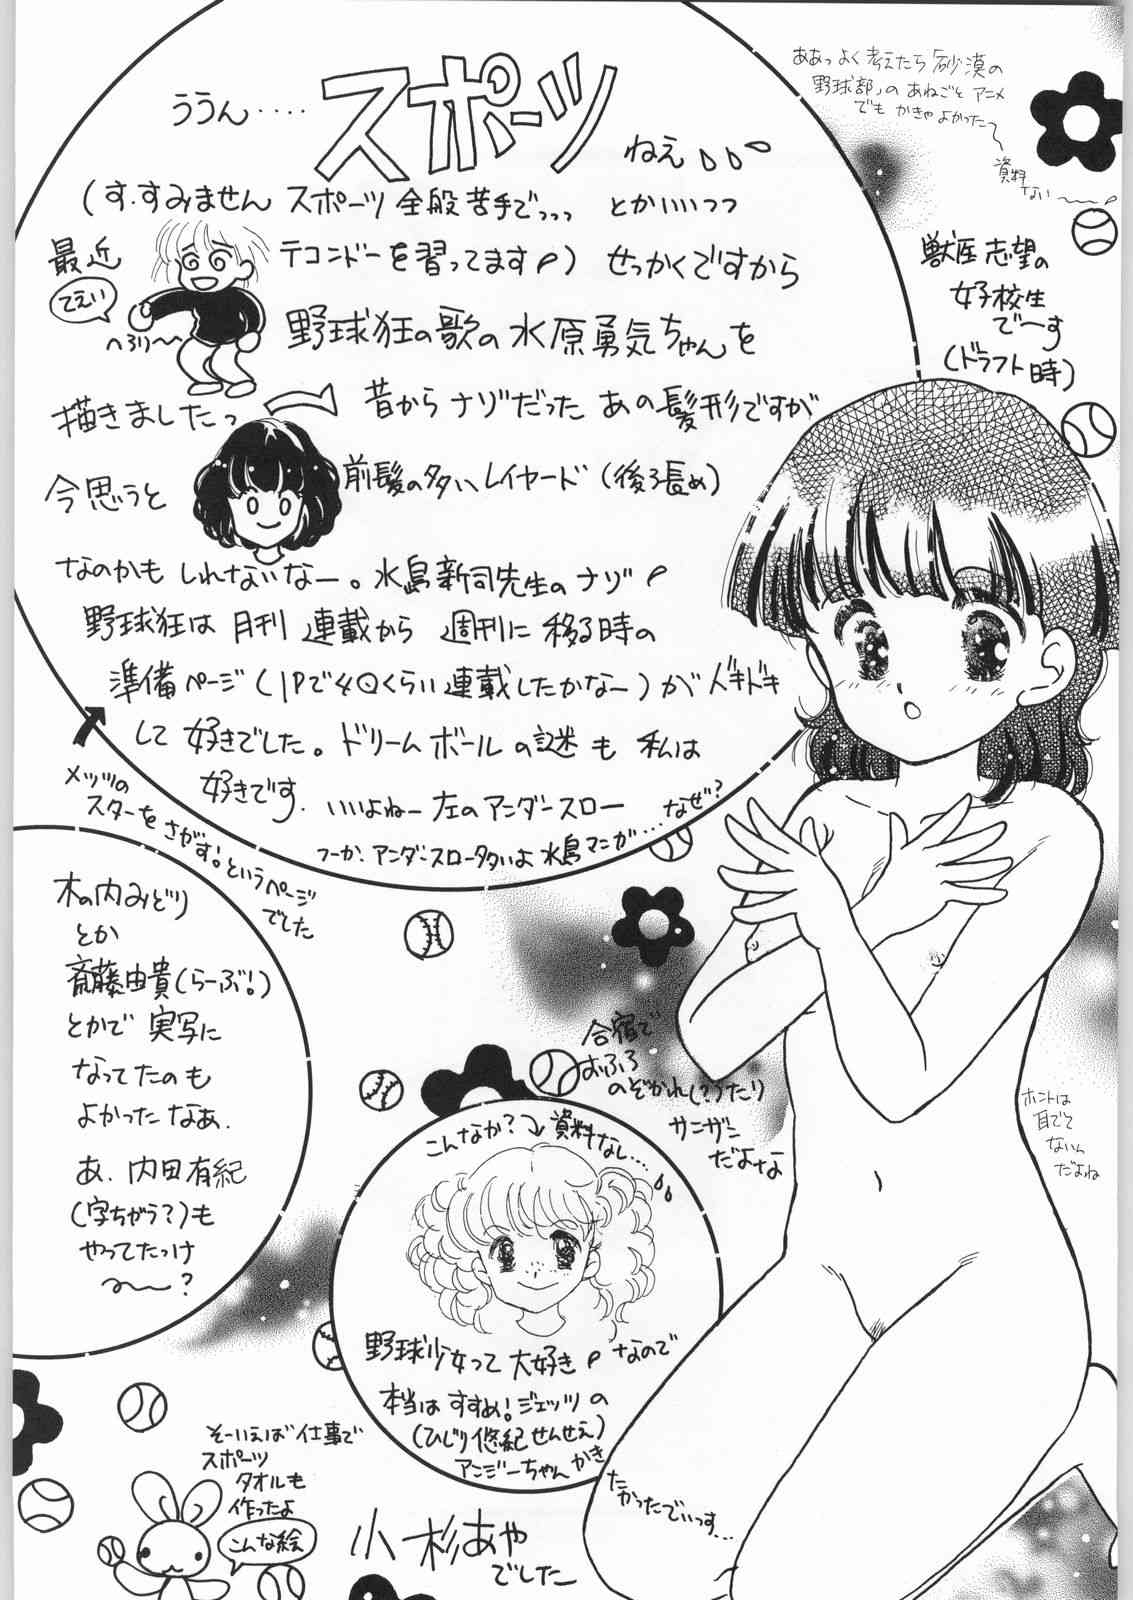 ううん････スポーツねえ
(す.すみません スポーツ全般苦手でっっっ とかいいつつ
最近
てえい
へろり〜〜
テコンドーを習ってます) せっかくですから
野球狂の歌の水原勇気ちゃんを
描きましたっ
昔からナゾだったあの髪形ですが
今思うと
前髪の多いレイヤード(後ろ長め)
なのかもしれないなー。水島新司先生のナゾ
野球狂は月刊連載から 週刊に移る時の
準備ページ(1Pで4Qくらい連載したかなー)がドキドキ
して好きでした。ドリームボールの謎も 私は
好きです. いいよねー左のアンダースロー
つーか.アンダースロー多いよ水島マンガ…なぜ?
メッツの
スターをさがす!というページ
でした
ああっよく考えたら「砂漠の
野球部」のあねごとアニメ
でもかきゃよかった〜
資料
ない〜〜
獣医志望の
女子校生
で〜す
(ドラフト時)
木の内みどり
とか
斎藤由貴(らーぶ!)
とかで 実写に
なってたのも
よかったなぁ.
あ.内田有紀
(字ちがう?)も
やってたっけ
〜〜?
合宿で
おふろ
のぞかれ(?)たり
サンザン
だよな
ホントは
耳でて
ないん
だよね
こんなか? 資料なし…
野球少女って大好き なので
本当はすすめ!ジェッツの
(ひじり悠紀せんせえ)
アンジーちゃんかき
たかったでいっす…
そーいえば仕事で
スポーツ
タオルも
作ったよ
こんな絵
小杉あや
でした